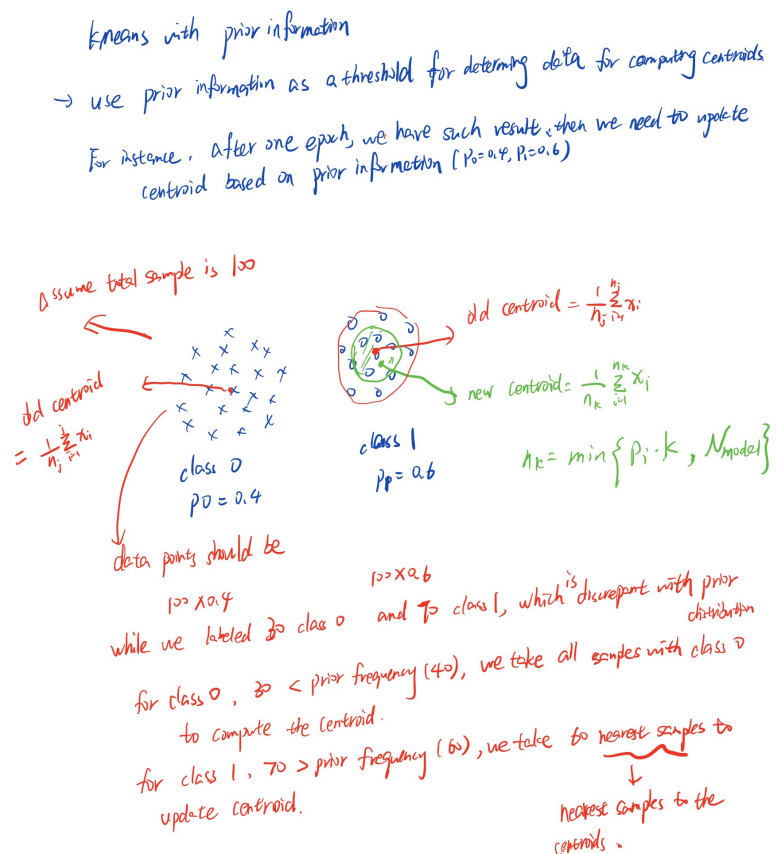 kmeans with prior information
→ use prior information as a threshold for determing data for computing centroids
For instance, after one epoch, we have such result, then we need to update
centroid based on prior information (P₀=0.4, P₁=0.6)
Assume total sample is 100
old centroid = 1/nⱼ Σ xᵢ
old centroid
= 1/nⱼ Σ xᵢ
new centroid = 1/nₖ Σ xᵢ
class 0
P0 = 0.4
class 1
Pp = 0.6
nₖ = min{Pᵢ·k, Nmodel}
data points should be
100 x 0.4
100 x 0.6
while we labeled 30 class 0 and 70 class 1, which is discrepant with prior
distribution
for class 0, 30 < prior frequency (40), we take all samples with class 0
to compute the centroid.
for class 1, 70 > prior frequency (60), we take 60 nearest samples to
update centroid.
nearest samples to the
centroids.